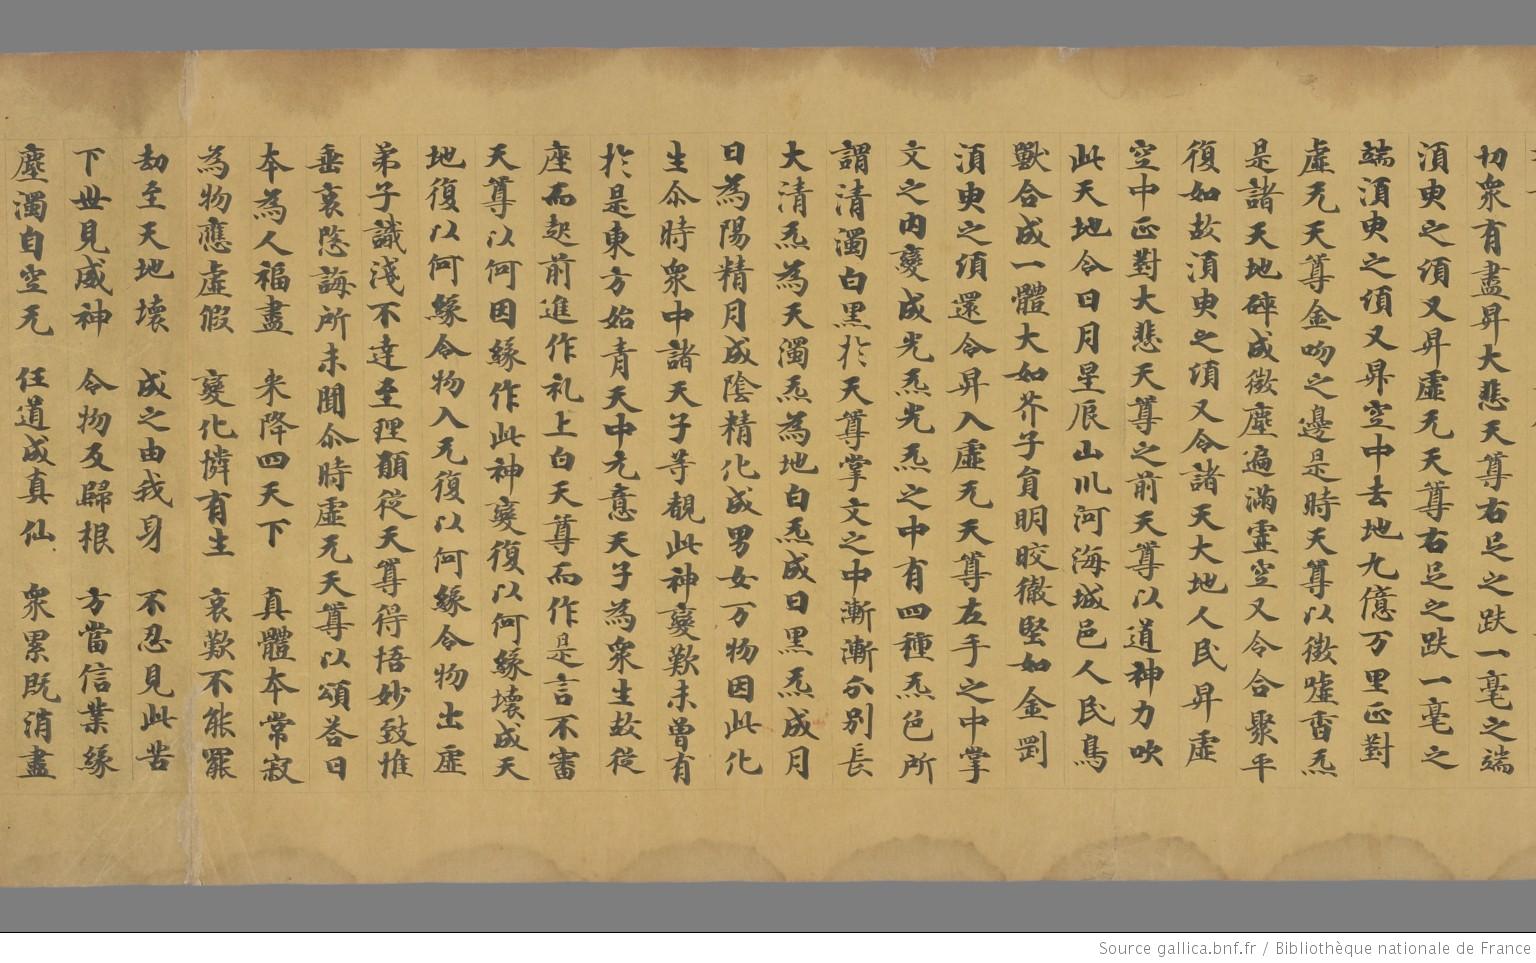 切衆有盡昇大悲天尊右足之趺一毫之端
湏臾之湏又昇虛无天尊右足之趺一毫之
端湏臾之湏又昇空中去地九億万里正對
虛无天尊金吻之邊是時天尊以微噓香炁
是諸天地碎成微塵遍滿靈空又令合聚平
復如故湏臾之湏又令諸天大地人民昇虛
空中正對大悲天尊之前天尊以道神力吹
此天地令日月星辰山川河海城邑人民鳥
獸合成一體大如芥子貟明皎徹堅如金剛
湏臾之湏還令昇入虛无天尊左手之中掌
文之內變成光炁光炁之中有四種炁色所
謂清濁白黒於天尊掌文之中漸漸分別長
大清炁為天濁炁為地白炁成日黒炁成月
日為陽精月成陰精化成男女万物因此化
生尒時衆中諸天子等覩此神變歎未曽有
於是東方始青天中元意天子為衆生故從
座而起前進作礼上白天尊而作是言不審
天尊以何因緣作此神變復以何緣壞成天
地復以何緣令物入无復以何緣令物出虛
弟子識淺不達至理願從天尊得悟妙致惟
垂哀隱誨所未聞尒時虛无天尊以頌荅曰
本為人福盡 来降四天下 真體本常寂
為物應虛假 變化憐有生 哀歎不能罷
劫至天地壞 成之由我身 不忍見此苦
下世見威神 令物及歸根 方當信業緣
塵濁自空无 任道成真仙 衆累既消盡
Source gallica.bnf.fr / Bibliothèque nationale de France